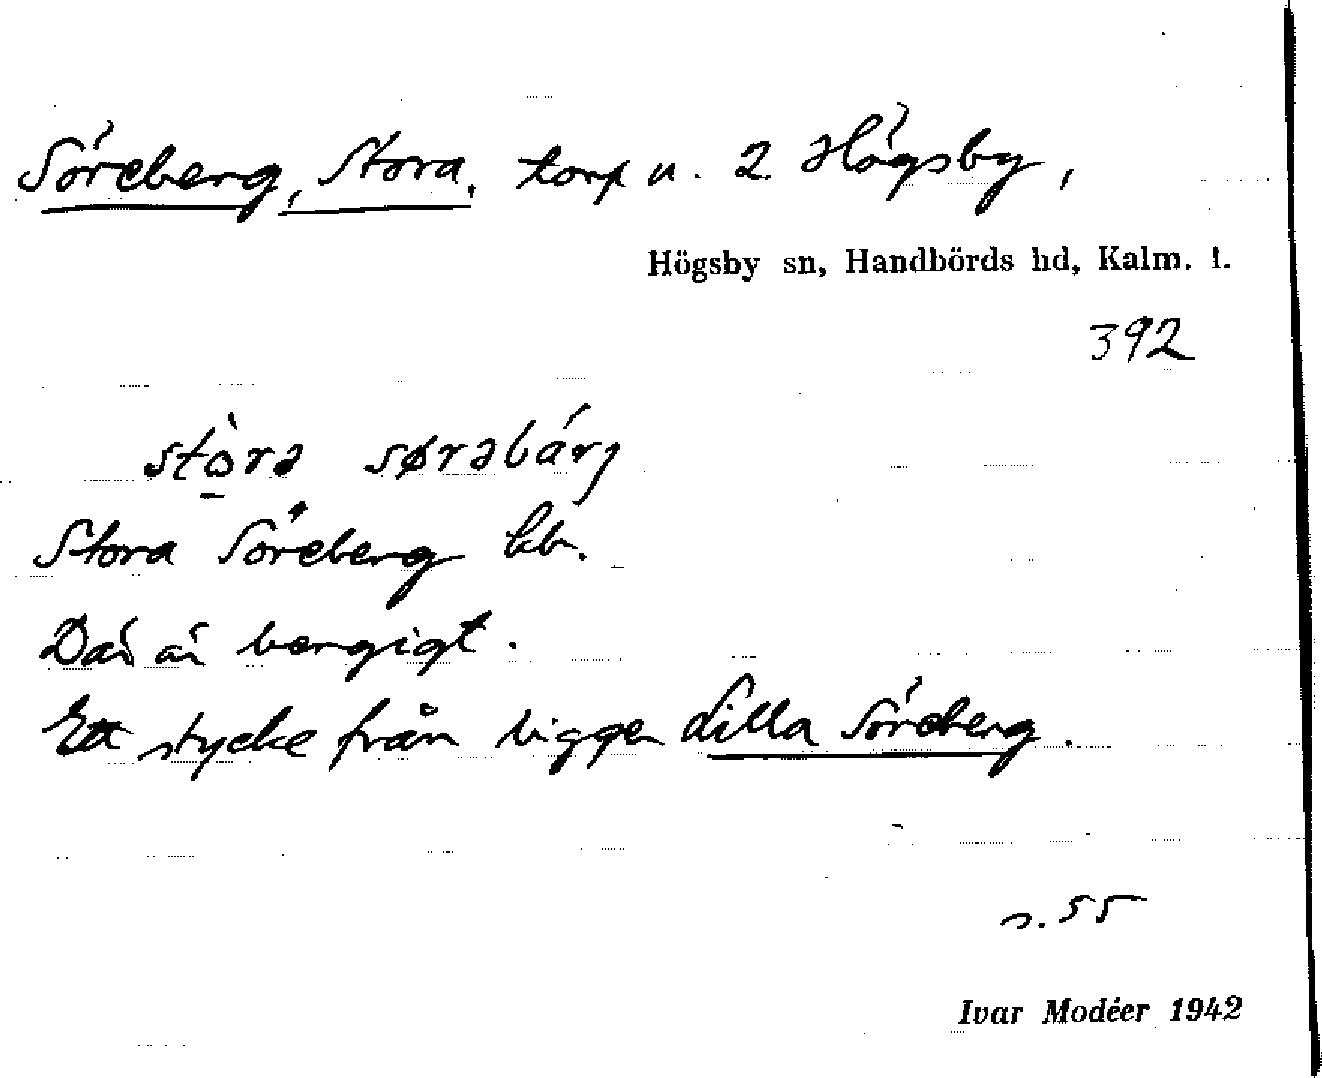 Söreberg, Stora, torp u. 2 Högsby,
Högsby sn, Handbörds hd, Kalm. l.
392
stò̱rə sørəbárj
Stora Söreberg kb.
Där är bergigt.
Ett stycke från ligger Lilla Söreberg.
s. 55
Ivar Modéer 1942